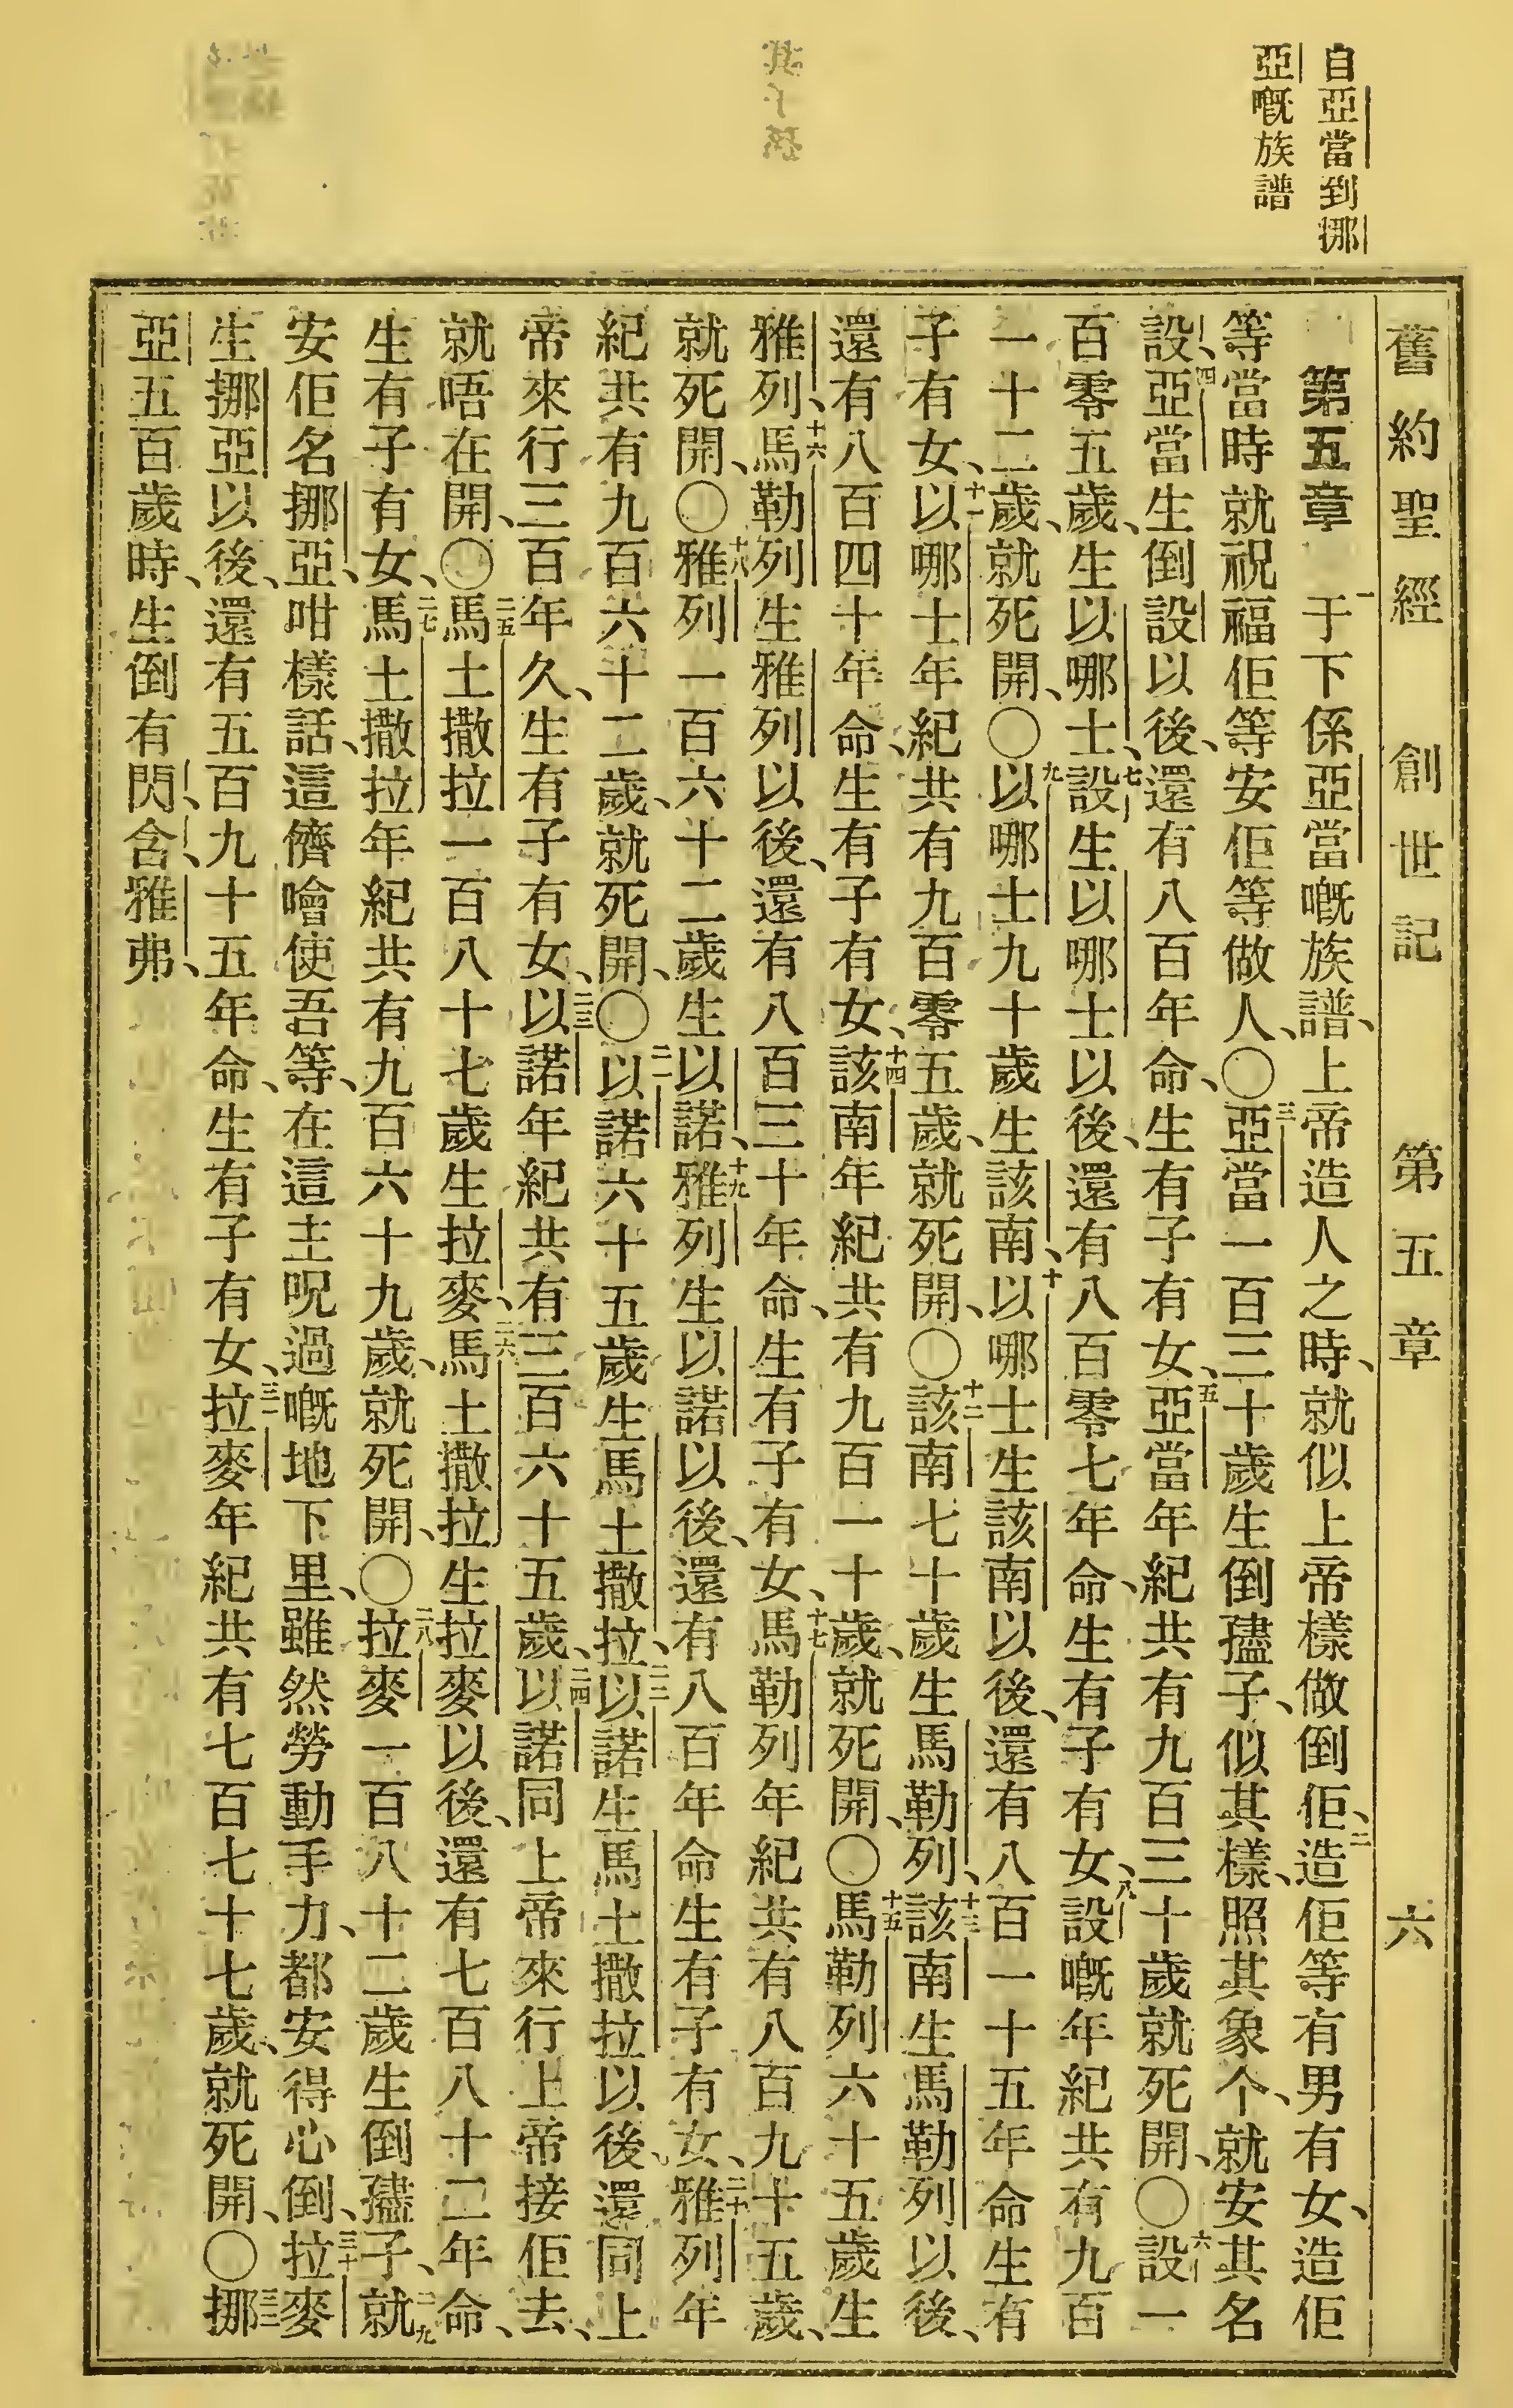 自亞當到挪
亞嘅族譜
舊約聖經 創世記 第五章 六
第五章 一于下係亞當嘅族譜、上帝造人之時、就似上帝樣做倒佢、二造佢等有男有女、造佢
等當時就祝福佢等安佢等做人、〇三亞當一百三十歲生倒孻子、似其樣、照其象个、就安其名
設、四亞當生倒設以後、還有八百年命、生有子有女、五亞當年紀共有九百三十歲就死開、〇六設一
百零五歲、生以哪士、七設生以哪士以後、還有八百零七年命、生有子有女、八設嘅年紀共有九百
一十二歲、就死開、〇九以哪士九十歲生該南、十以哪士生該南以後、還有八百一十五年命生有
子有女、十一以哪士年紀共有九百零五歲、就死開、〇十二該南七十歲生馬勒列、十三該南生馬勒列以後、
還有八百四十年命、生有子有女、十四該南年紀共有九百一十歲、就死開、〇十五馬勒列六十五歲生
雅列、十六馬勒列生雅列以後、還有八百三十年命、生有子有女、十七馬勒列年紀共有八百九十五歲、
就死開、〇十八雅列一百六十二歲生以諾、十九雅列生以諾以後、還有八百年命生有子有女、二十雅列年
紀共有九百六十二歲、就死開、〇二一以諾六十五歲生馬土撒拉、二二以諾生馬土撒拉以後、還同上
帝來行三百年久、生有子有女、二三以諾年紀共有三百六十五歲、二四以諾同上帝來行上帝接佢去、
就唔在開、〇二五馬土撒拉一百八十七歲生拉麥、二六馬土撒拉生拉麥以後、還有七百八十二年命、
生有子有女、二七馬土撒拉年紀共有九百六十九歲、就死開、〇二八拉麥一百八十二歲生倒孻子、二九就
安佢名挪亞、咁樣話、這儕噲使吾等、在這主呪過嘅地下里、雖然勞動手力、都安得心倒、三十拉麥
生挪亞以後、還有五百九十五年命、生有子有女、三一拉麥年紀共有七百七十七歲、就死開、〇三二挪
亞五百歲時、生倒有閃、含、雅弗、